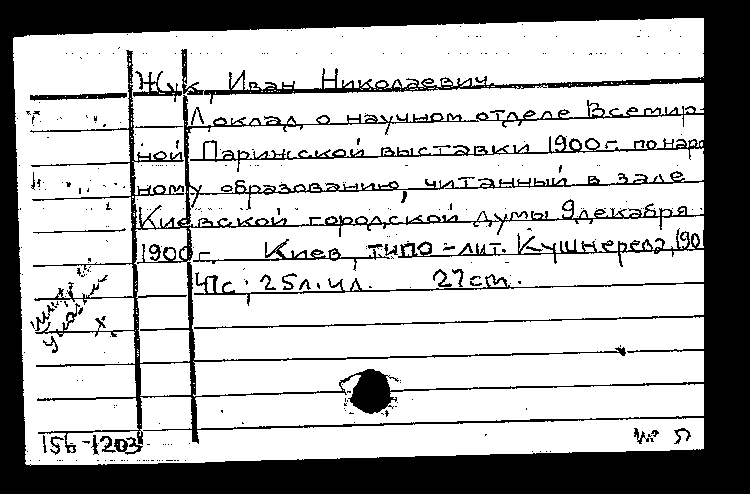 Жук, Иван Николаевич.
Доклад о научном отделе Всемир-
ной Парижской выставки 1900 г. по народ
ному образованию, читанный в зале
Киевской городской думы 9 декабря
1900 г. Киев, типо-лит. Кушнерева, 190
25л. ил. 27cm.
156-1203